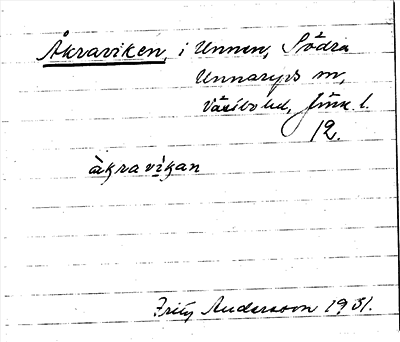 Åkraviken, i Unnen, Södra
Unnaryds sn,
Västbo hd, Jönk. l.
12.
åkravikan
Fritz Andersson 1931.